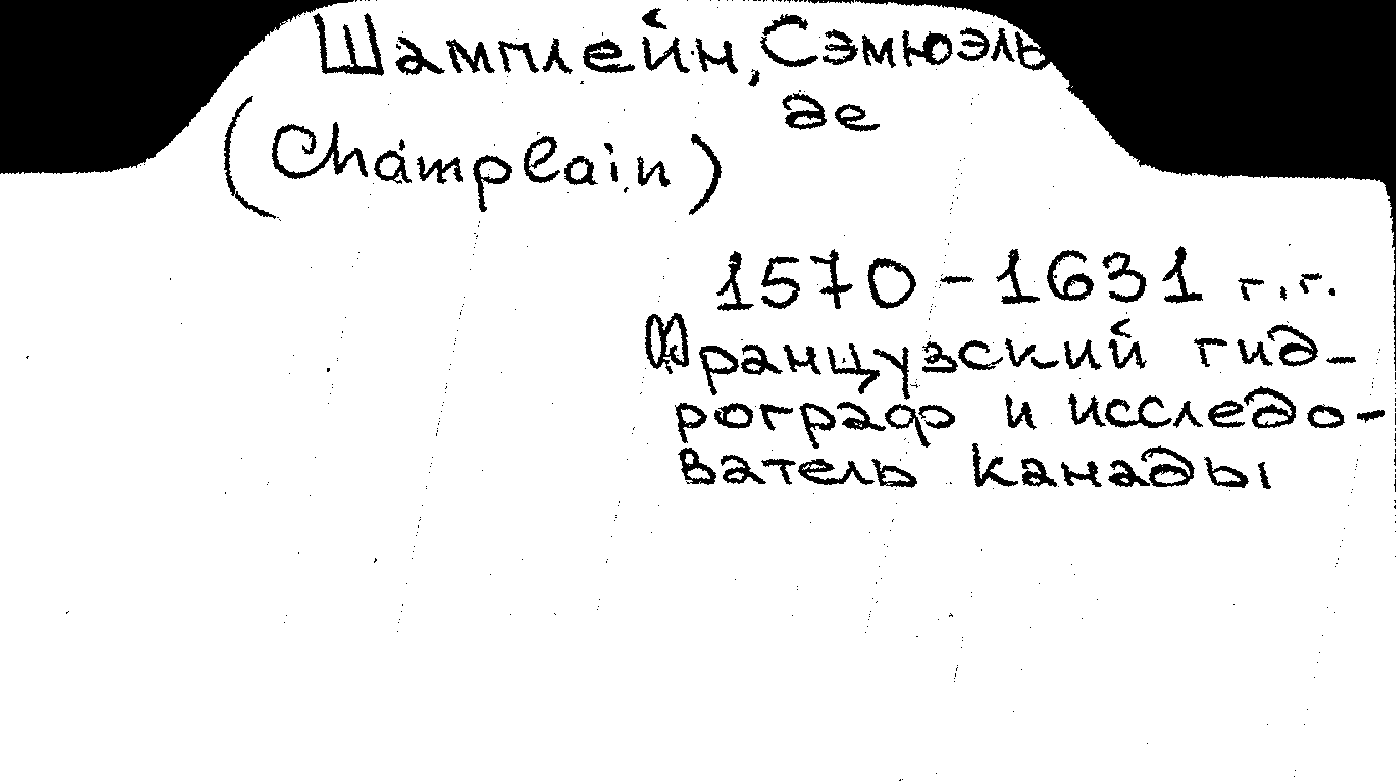 Шамплейн, Сэмюэль
де
(Champlain)
1570-1631 г.г.
Французский гид-
рограф и исследо-
ватель Канады